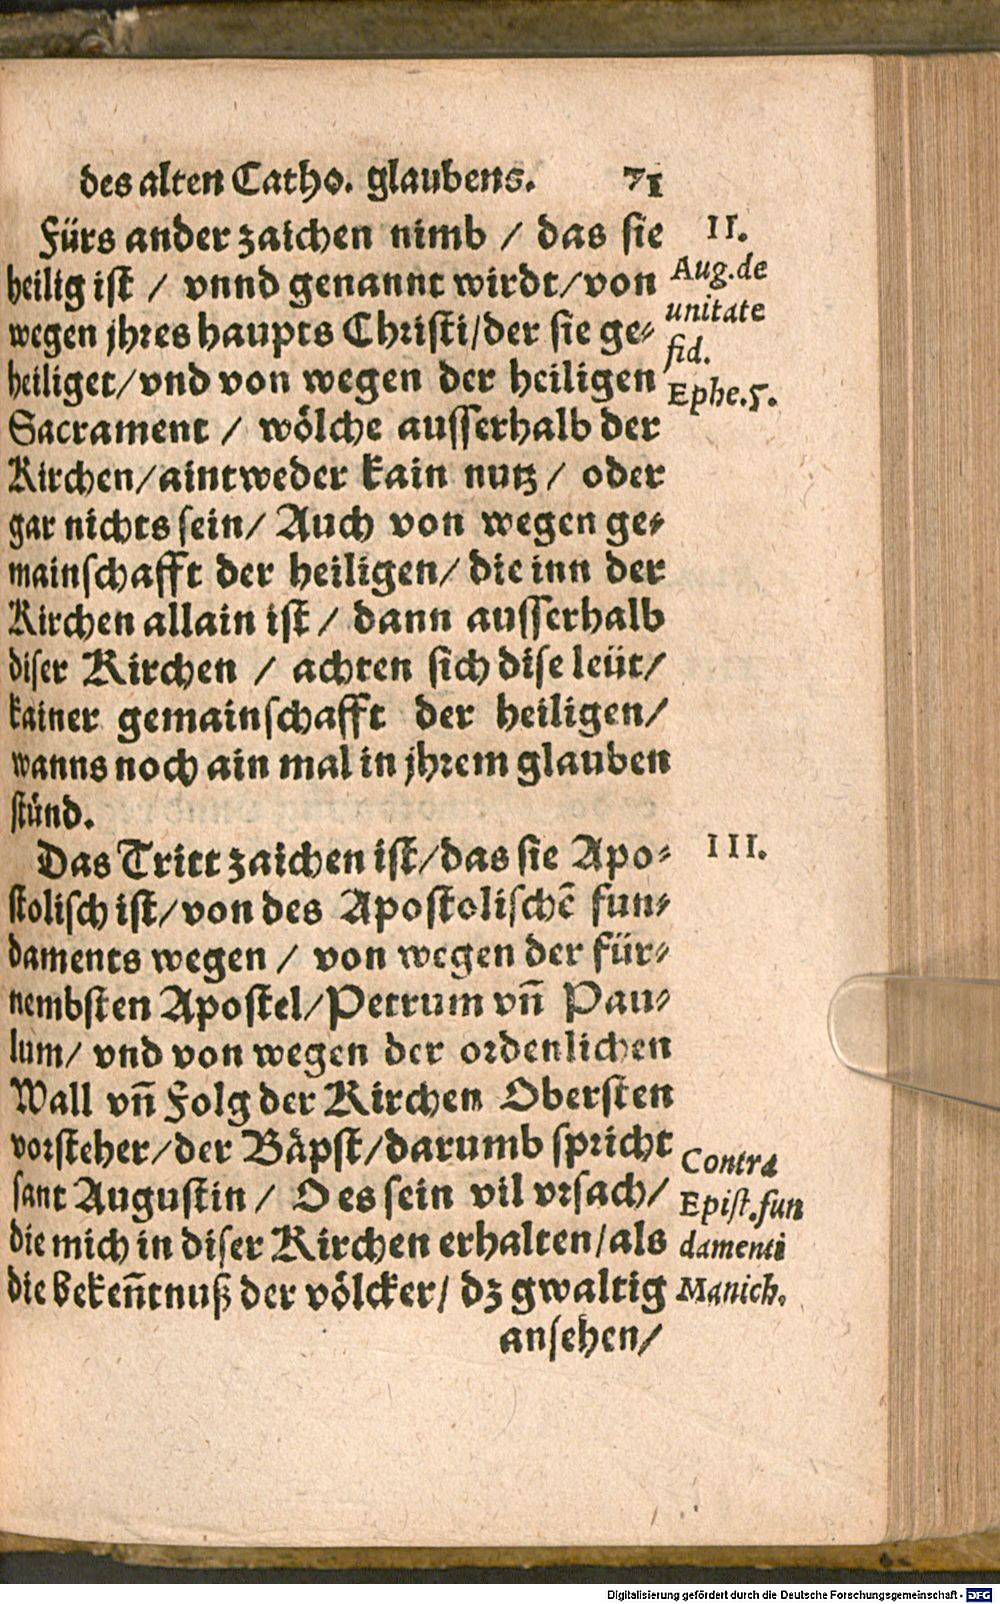 des alten Catho. glaubens. 71
Fürs ander zaichen nimb / das sie
heilig ist / vnnd genannt wirdt/von
wegen jhres haupts Christi/der sie ge⸗
heiliget/vnd von wegen der heiligen
Sacrament / wölche ausserhalb der
Kirchen/aintweder kain nutz / oder
gar nichts sein/ Auch von wegen ge⸗
mainschafft der heiligen/ die inn der
Kirchen allain ist / dann ausserhalb
diser Kirchen / achten sich dise leüt/
kainer gemainschafft der heiligen/
wanns noch ain mal in jhrem glauben
stünd.
II.
Aug.de
unitate
fid.
Ephe.5.
Das Tritt zaichen ist/das sie Apo⸗
stolisch ist/von des Apostolischē fun⸗
daments wegen / von wegen der für⸗
nembsten Apostel/Petrum vn̄ Pau⸗
lum/ vnd von wegen der ordenlichen
Wall vn̄ Folg der Kirchen Obersten
vorsteher/der Bäpst/darumb spricht
sant Augustin / O es sein vil vrsach/
die mich in diser Kirchen erhalten/als
die beken̄tnuß der völcker/ dz gwaltig
ansehen/
III.
Contra
Epist.fun
damenti
Manich.
Digitalisierung gefördert durch die Deutsche Forschungsgemeinschaft - DFG